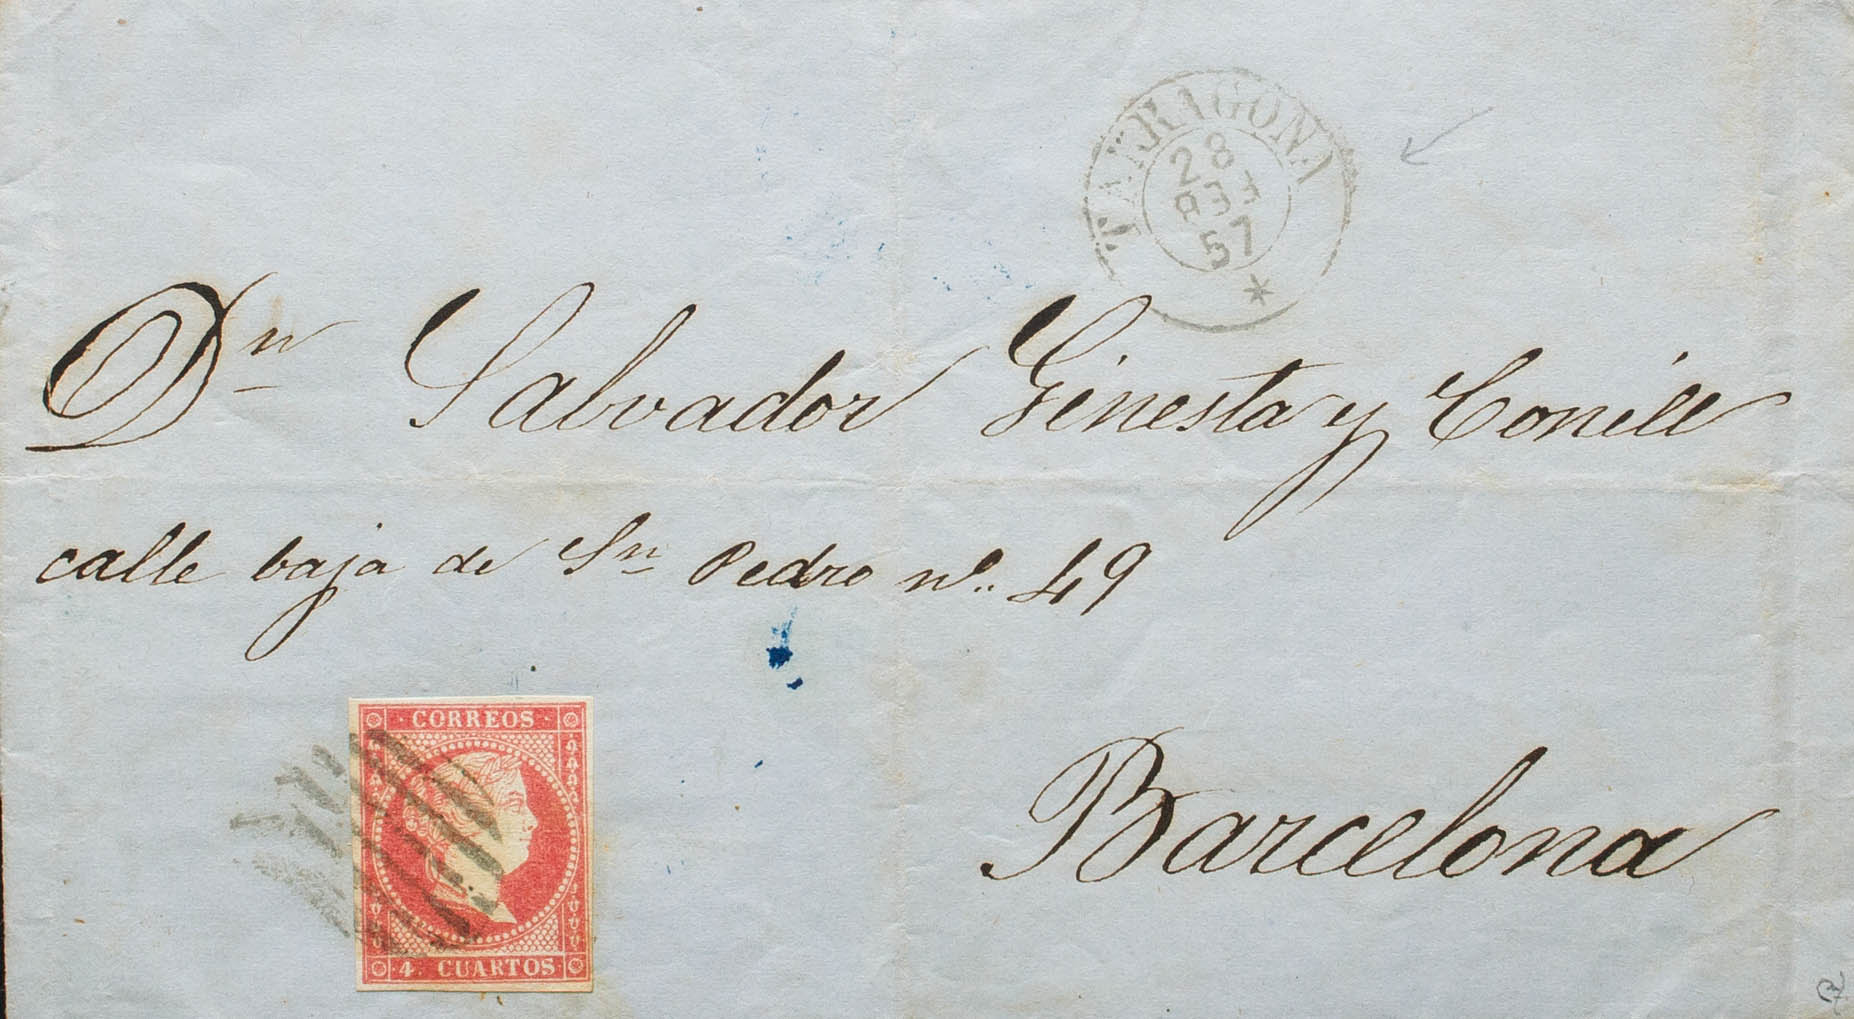 TARRAGONA
28
57
Dn Salvador Ginesta y Conill
calle baja de Sn Pedro nº. 49
CORREOS
4 CUARTOS
Barcelona